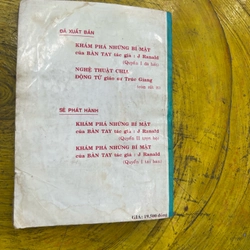 ĐÃ XUẤT BẢN
KHÁM PHÁ NHỮNG BÍ MẬT
của BÀN TAY tác giả : J Ranald
(Quyển I
NGHỆ THUẬT CHIA
ĐỘNG TỪ giáo sư Trúc Giang
SẼ PHÁT HÀNH
KHÁM PHÁ NHỮNG BÍ MẬT
của BÀN TAY tác giả : J Ranald
(Quyển II
KHÁM PHÁ NHỮNG BÍ MẬT
của BÀN TAY tác giả : J Ranald
(Quyển I tái bản)
GIÁ: 19.500 đồng